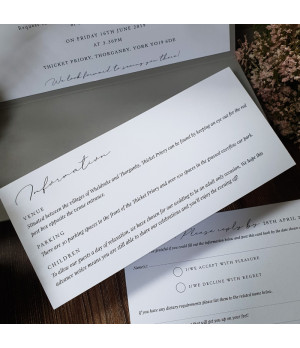 ON FRIDAY 14TH JUNE 2019
AT 3.30PM
THICKET PRIORY, THORGANBY, YORK YO19 6DE
We look forward to seeing you there!
Information
VENUE
Situated between the villages of Wheldrake and Thorganby, Thicket Priory can be found by keeping an eye out for the red
post box opposite the venue entrance.
PARKING
There are 30 parking spaces in the front of the Thicket Priory and over 100 spaces in the ground overflow car park.
CHILDREN
To allow our guests a day of relaxation, we have chosen for our wedding to be an adult only occasion. We hope this
advance notice means you are still able to share our celebrations and you'll enjoy the evening off!
Please reply by 28TH APRIL
I/WE ACCEPT WITH PLEASURE
I/WE DECLINE WITH REGRET
If you have any dietary requirements please list them in the